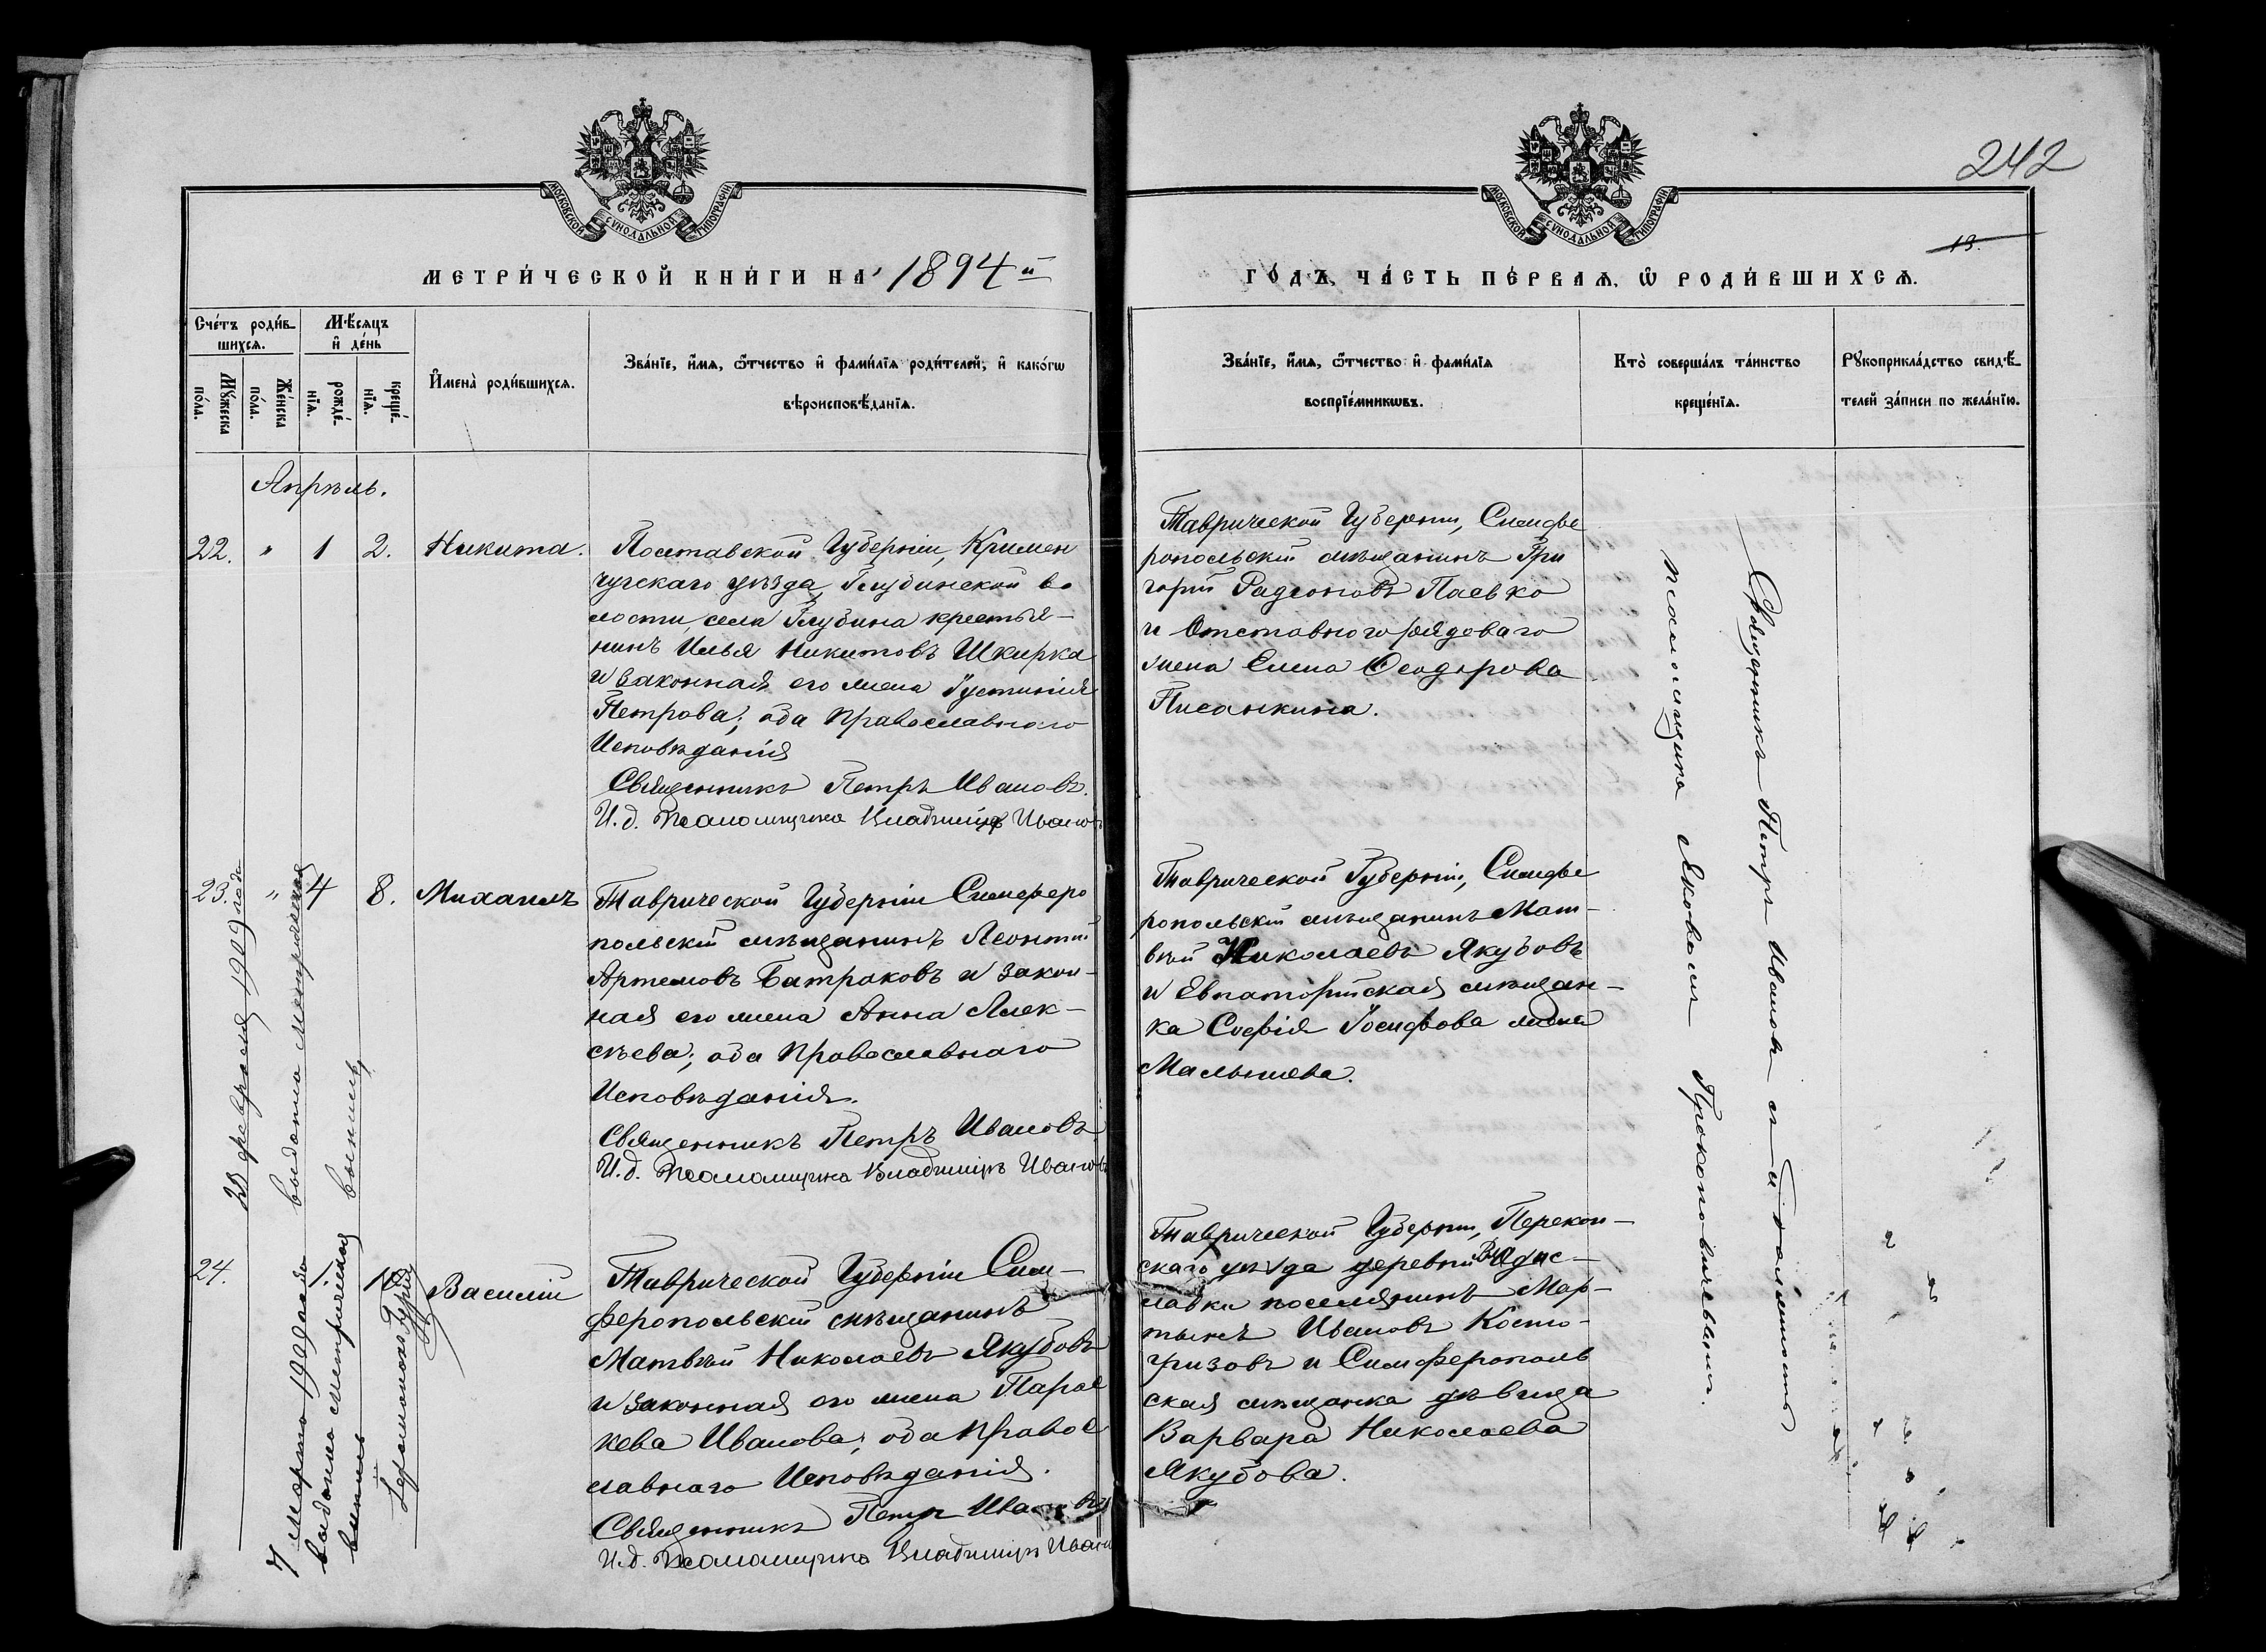 242
13.
МОСКОВСКОЙ СѴНОДАЛЬНОЙ ТИПОГРАФІИ
МОСКОВСКОЙ СѴНОДАЛЬНОЙ ТИПОГРАФІИ
МЕТРИ́ЧЕСКОЙ КНИ́ГИ НА 1894 й
ГО́ДЪ, ЧА́СТЬ ПЕ́РВАЯ, Ѽ РОДИ́ВШИХСЯ.
Сче́тъ роди́в-
шихся.
Мѣ́сяцъ
и де́нь
Мꙋ́жеска
по́ла.
Же́нска
по́ла.
рожде́-
нїя.
креще́-
нїя.
Имена̀ роди́вшихся.
Зва́нїе, и́мя, ѻ҆́тчество и фами́лїя роди́телей, и како́гѡ
вѣроисповѣ́данїя.
Зва́нїе, и́мя, ѻ҆́тчество и фами́лїя
воспрїе́мникѡвъ.
Кто̀ соверша́лъ та́инство
креще́нїя.
Рꙋкоприкла́дство свидѣ́-
телей за́писи по жела́нїю.
Апрѣль.
22. " 1 2. Никита.
Полтавской Губерніи, Кримен
чугскаго уѣзда, Глубинской во
лости, села Глубина крестья-
нинъ Илья Никитовъ Шкирка
и законная его жена Іустинія
Петрова; оба Православнаго
Исповѣданія
Священникъ Петръ Ивановъ.
И. д. Псаломщика Владиміръ Ивановъ
Таврической Губерніи, Симфе
ропольскій мѣщанинъ Гри
горій Радіоновъ Паевко
и Отставного рядоваго
жена Елена Ѳеодорова
Писанкина.
23. " 4 8. Михаилъ
Таврической Губерніи Симферо
польскій мѣщанинъ Леонтій
Артемовъ Батраковъ и закон-
ная его жена Анна Алек-
сѣева; оба Православнаго
Исповѣданія.
Священникъ Петръ Ивановъ
И. д. Псаломщика Владиміръ Ивановъ
Таврической Губерніи, Симфе
ропольскій мѣщанинъ Мат-
вѣй Николаевъ Якубовъ
и Евпаторійская мѣщан-
ка Софія Іосифова
Малышева.
24. Василій
Таврической Губерніи Сим-
феропольскій мѣщанинъ
Матвѣй Николаевъ Якубовъ
и законная его жена Парас
кева Иванова; оба Правос
лавнаго Исповѣданія.
Священникъ Петръ Ивановъ
И. д. Псаломщика Владиміръ Ивановъ
Таврической Губерніи, Перекоп-
скаго уѣзда деревни
славки поселянинъ Мар-
тынъ Ивановъ Косто-
гризовъ и Симферополь
ская мѣщанка дѣвица
Варвара Николаева
Якубова.
Священникъ Петръ Ивановъ съ и. д.
псаломщика Яковомъ Прокоповичевымъ.
февраля 1909 года выдана метрическая
выпись
7 марта 1909 года
выдана метрическая
выпись
Іеромонахъ Гурій